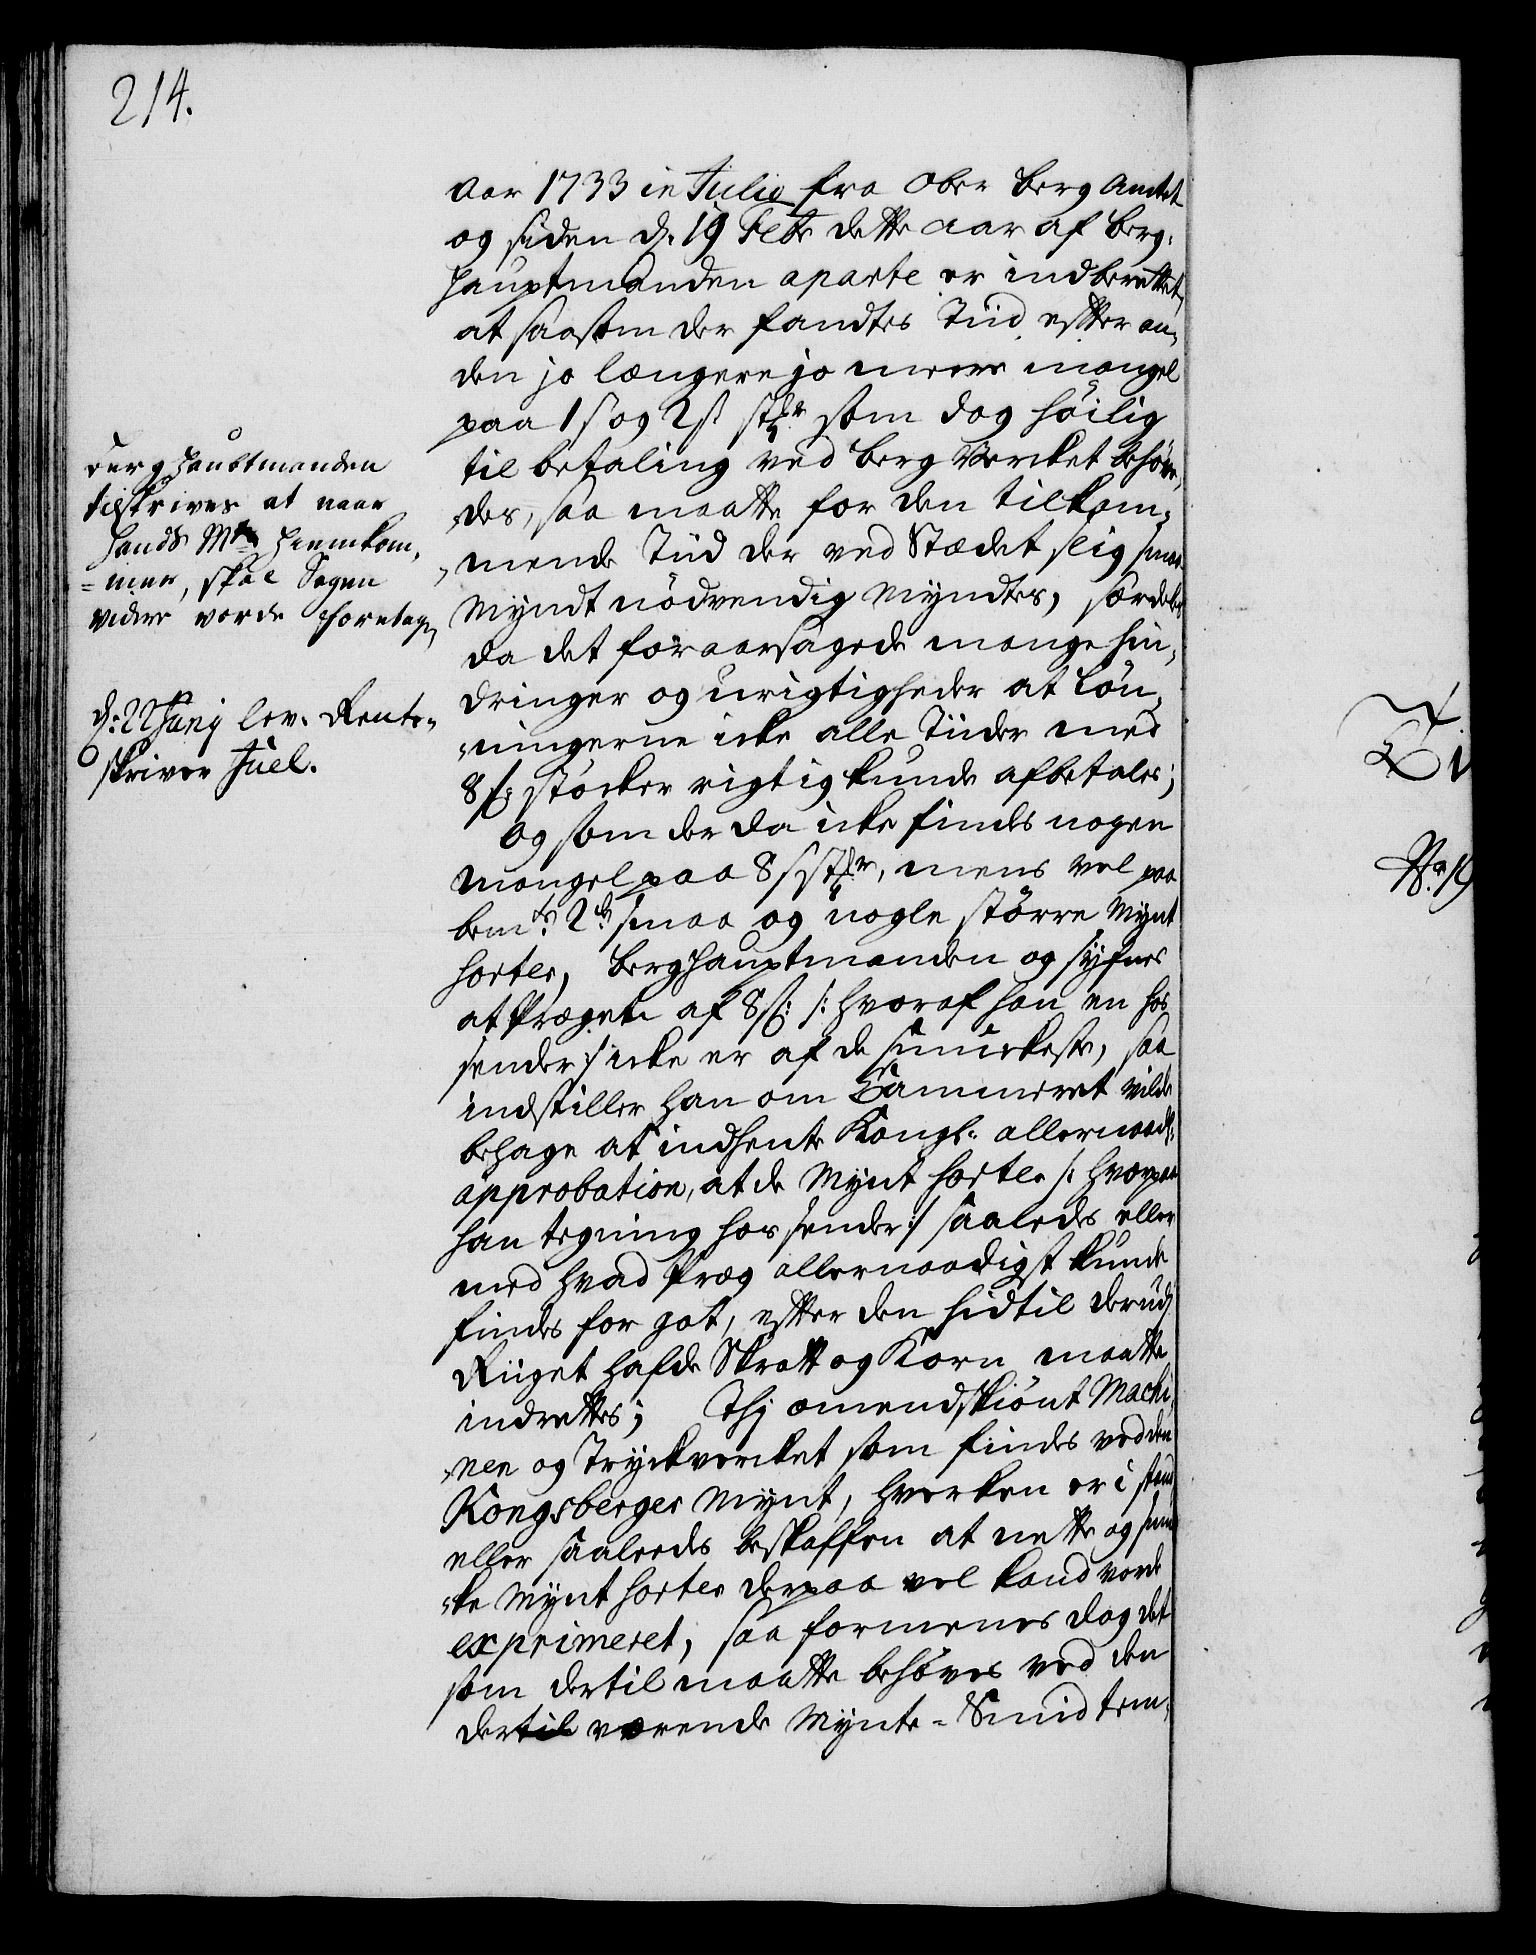 214.
Aar 1733 in Julio fra Ober Berg Amtet
og siden d. 19 Febr dette aar af Berg-
hauptmanden aparte er indberettet,
at saasom der fandtes Tiid efter an-
den jo længere jo meere mangel
paa 1 s og 2 s stkr som dog høilig
til betaling ved Berg Vercket behøve-
des, saa maatte for den tilkom-
mende Tiid der ved Stædet slig smaa
Myndt nødvendig Myndtes, særdeles
da det foraarsagede mange hin-
dringer og urigtigheder at Løn-
ningerne icke alle Tiider med
8 s: støcker rigtig kunde afbetales;
Og som der da icke findes nogen
mangel paa 8 s stkr, mens vel paa
bemte 2de smaa og nogle større Mynt
sorter, Berghauptmanden og syfnes
at Præget af 8 s: /: hvoraf han en hos
sender :/ icke er af de smuckeste, saa
indstiller han om Cammeret vilde
behage at indhente Kongl: allernaadst:
approbation, at de Mynt sorter /: hvorpaa
han tegning hos sender :/ saaledes eller
med hvad Præg allernaadigst kunde
findes for got, efter den hidtil derudj
Riiget hafde Skrott og Korn maatte
indrettes; Thj omendskiønt Machi-
nen og Tryckvercket som findes ved den
Kongsberger Mynt, hverken er i stand
eller saaleedes beskaffen at nette og smu-
cke Mynt sorter derpaa vel kand vorde
exprimeret, saa formenes dog det
som dertil maatte behøves ved den
dertil værende Mynte-Smid tem-
Berghaubtmanden
tilskrives at naar
hands Mt hiemkom-
mer, skal Sagen
videre vorde foretagen
d: 22 Junj lev. Rente-
skriver Juel.